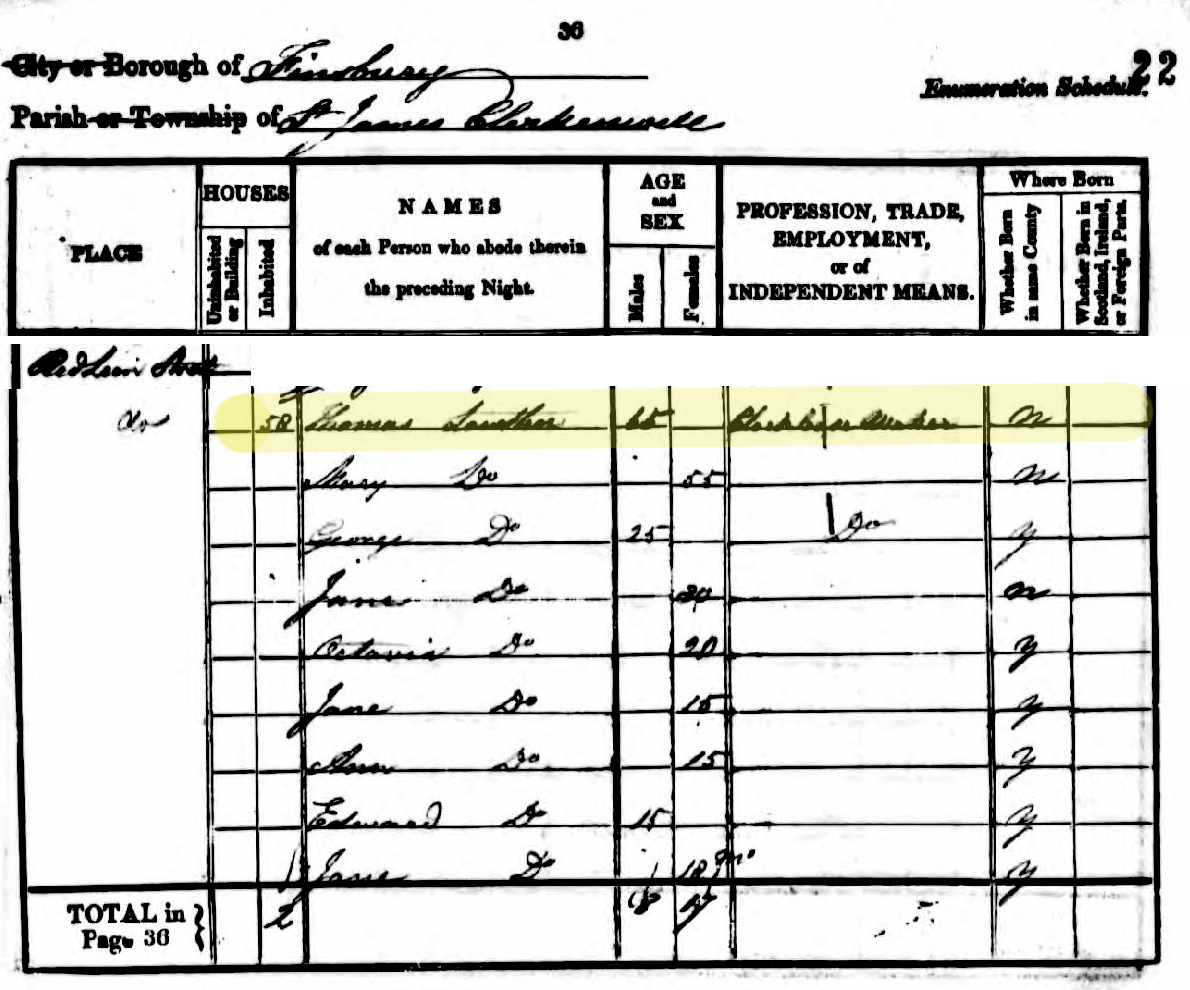 36
City or Borough of Finsbury
22
Enumeration Schedule.
Parish or Township of St James Clerkenwell
PLACE
HOUSES
Uninhabited or Building
Inhabited
NAMES
of each Person who abode therein
the preceding Night.
AGE
and
SEX
Males
Females
PROFESSION, TRADE,
EMPLOYMENT,
or of
INDEPENDENT MEANS.
Where Born
Whether Born in same County
Whether Born in Scotland, Ireland, or Foreign Parts.
Red Lion Street
do 58 Thomas 65 Clock Case Maker N
Mary Do 55 N
George Do 25 Do Y
Jane Do N
Octavia Do 20 Y
Jane Do 15 Y
Ann Do 15 Y
Edward Do 15 Y
Jane Do Y
TOTAL in
Page 36 } 2